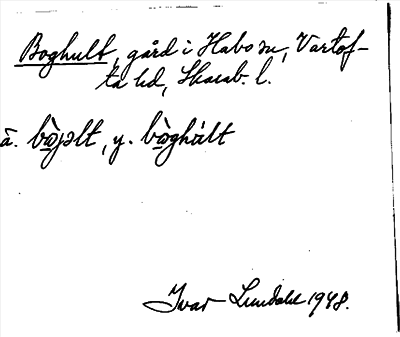 Boghult, gård i Habo sn, Vartof-
ta hd, Skarab. l.
ä. bo̲jəlt, y. bo̲ghult
Ivar Lundahl 1948.